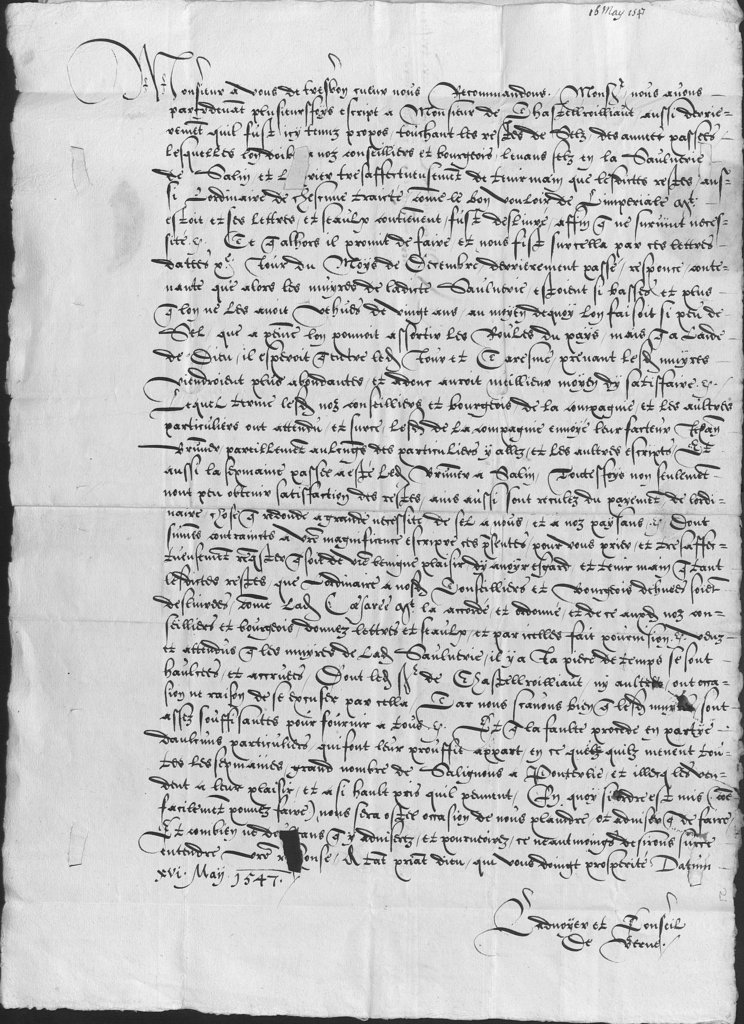 16 May 1547
Monsieur a vous de tresbon cueur nous Recommandons. Monsr nous avons
par cydevāt plusieursfoys escript a Monsieur de Chastelroilliaut aussi derrie-
remēt quil fust icy tenuz propos touchant les restes de Selz des années passées
lesquelles lon doibt a noz conseilliers et bourgeois leuans selz en la Saulnerie
de Salin et tresaffectueusemēt de tenir main que lesdictes restes, aus-
si Lordinaire de chescune traicte come le bon vouloir de Limperiale Mte
estoit et ses lettres, et seaulx contienent, fust desliuré, affin q̄ ne suruint neces-
sité &c. Et q̄ alhors il promit de faire et nous fist sur cella par ces lettres
dattées xe Jour du Moys de Decembre, derrierement passé, responce, conte-
nante que alors les muyres de ladicte Saulnerie estoient si basses et plus
q̄ lon ne les auoit vehues de vingt ans, au moyen dequoy Lon faisoit si peu de
Sel, que a pēne lon pouuoit assortir les Roûles du pays, mais q̄ a Laide
de Dieu, il esperoit q̄ entre led. Jour et Caresme prenant lesd. muyres
viendroient plus abondantes, et adonc auroit meillieur moyen dy satisfaire &c.
Lequel terme lesd. noz conseilliers et bourgeois de la compagnie et les aultres
particuliers ont attendu, et surce lesd. de la compagnie enuoyé leur facteur Jehan
Brun̄er pareillement aulcungs des particuliers y allez, et les aultres escripts, Et
aussi la sepmaine passée a esté led. Brun̄er a Salin, Toutesfoys non seulemēt
nont peu obtenir satisfaction des restes, ains aussi sont reculez du payemēt de lordi-
naire, chose q̄ redonde a grande necessité de sel a nous, et a noz paysans, &c. Dont
sum̄es contraincts a vre magnificence escripre ces p̄sentes pour vous prier, et tresaffec-
tueusemēt requester q̄ soit de vre benigne plaisir dy auoyr esgard et tenir main q̄ tant
lesdictes restes, que Lordinaire a nosd. Conseilliers et Bourgeois dehuees soiēt
desliurees come Lad. Cesaree Mte la accordé et ordonné, et de ce aud. noz con-
seilliers et bourgeois donnez lettres et seaulx, et par icelles fait pourueision, &c. Veuz
et attendus q̄ les muyres de Lad. Saulnerie, il y a Ja piece de temps se sont
haulcées, et accrues, Dont led. Sr de Chastelroilliaut, ny aultres ont occa-
sion ne raison de se excuser par cella, Car nous scauons bien q̄ lesd. muyres sont
assez souffisantes pour fournir a tous, &c. Et q̄ la faulte procede en partye
daulcuns particuliers, qui font leur prouffit appart, en ce quelz quilz menent tou-
tes les sepmaines, grand nombre de Salignons a Ponterlie, et illecq les ven-
dent a leur plaisir, et a si hault pris quil peuuent, En quoy si ordre est mis (coē
facilemēt pouuez faire) nous sera ostee occasion de nous plaindre, et aduiser q̄ de faire,
Et combien ne doubtans q̄ y aduiserez, et pouruoirez, ce neantmoings desirons surce
entendre vre responce, A tāt priant dieu, qui vous doingt prosperité. Datum
xvi. May. 1547.
Laduoyer et Conseil
de Berne.